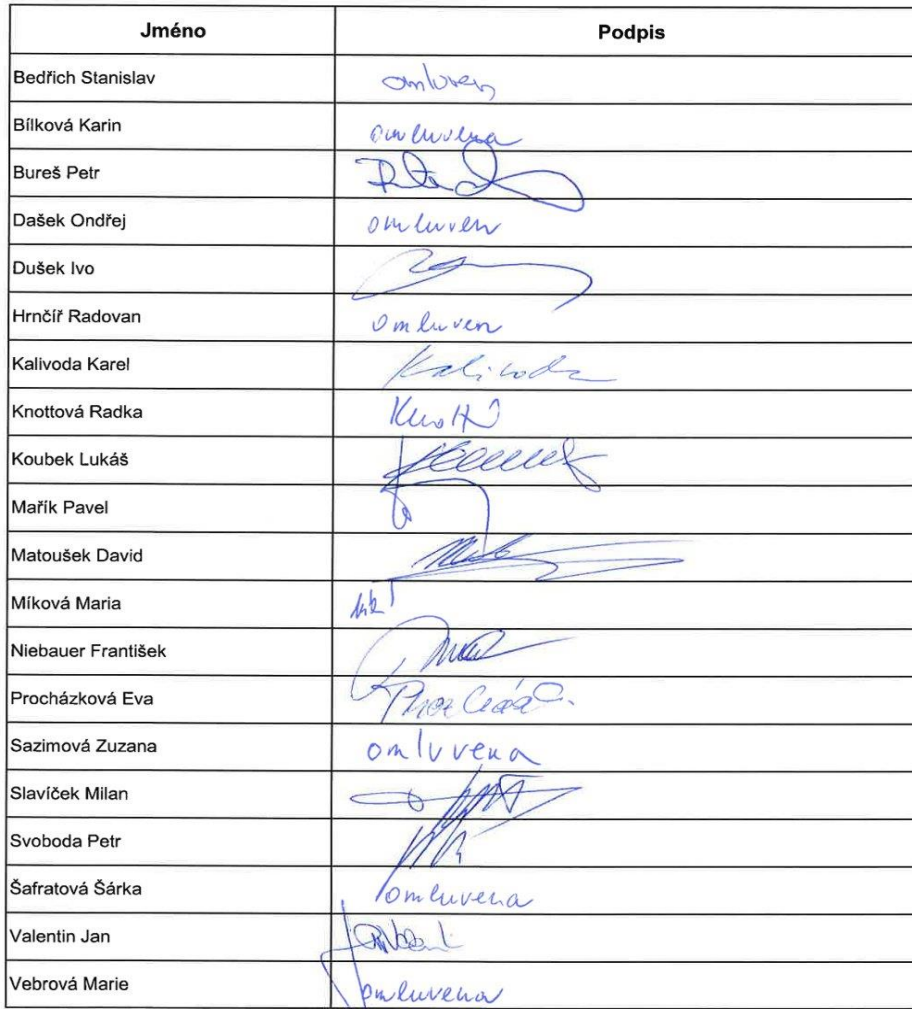 Jméno Podpis
Bedřich Stanislav omluven
Bílková Karin omluvena
Bureš Petr
Dašek Ondřej omluven
Dušek Ivo
Hrnčíř Radovan omluven
Kalivoda Karel Kalivoda
Knottová Radka
Koubek Lukáš
Mařík Pavel
Matoušek David
Míková Maria
Niebauer František
Procházková Eva
Sazimová Zuzana omluvena
Slavíček Milan
Svoboda Petr
Šafratová Šárka omluvena
Valentin Jan
Vebrová Marie omluvena